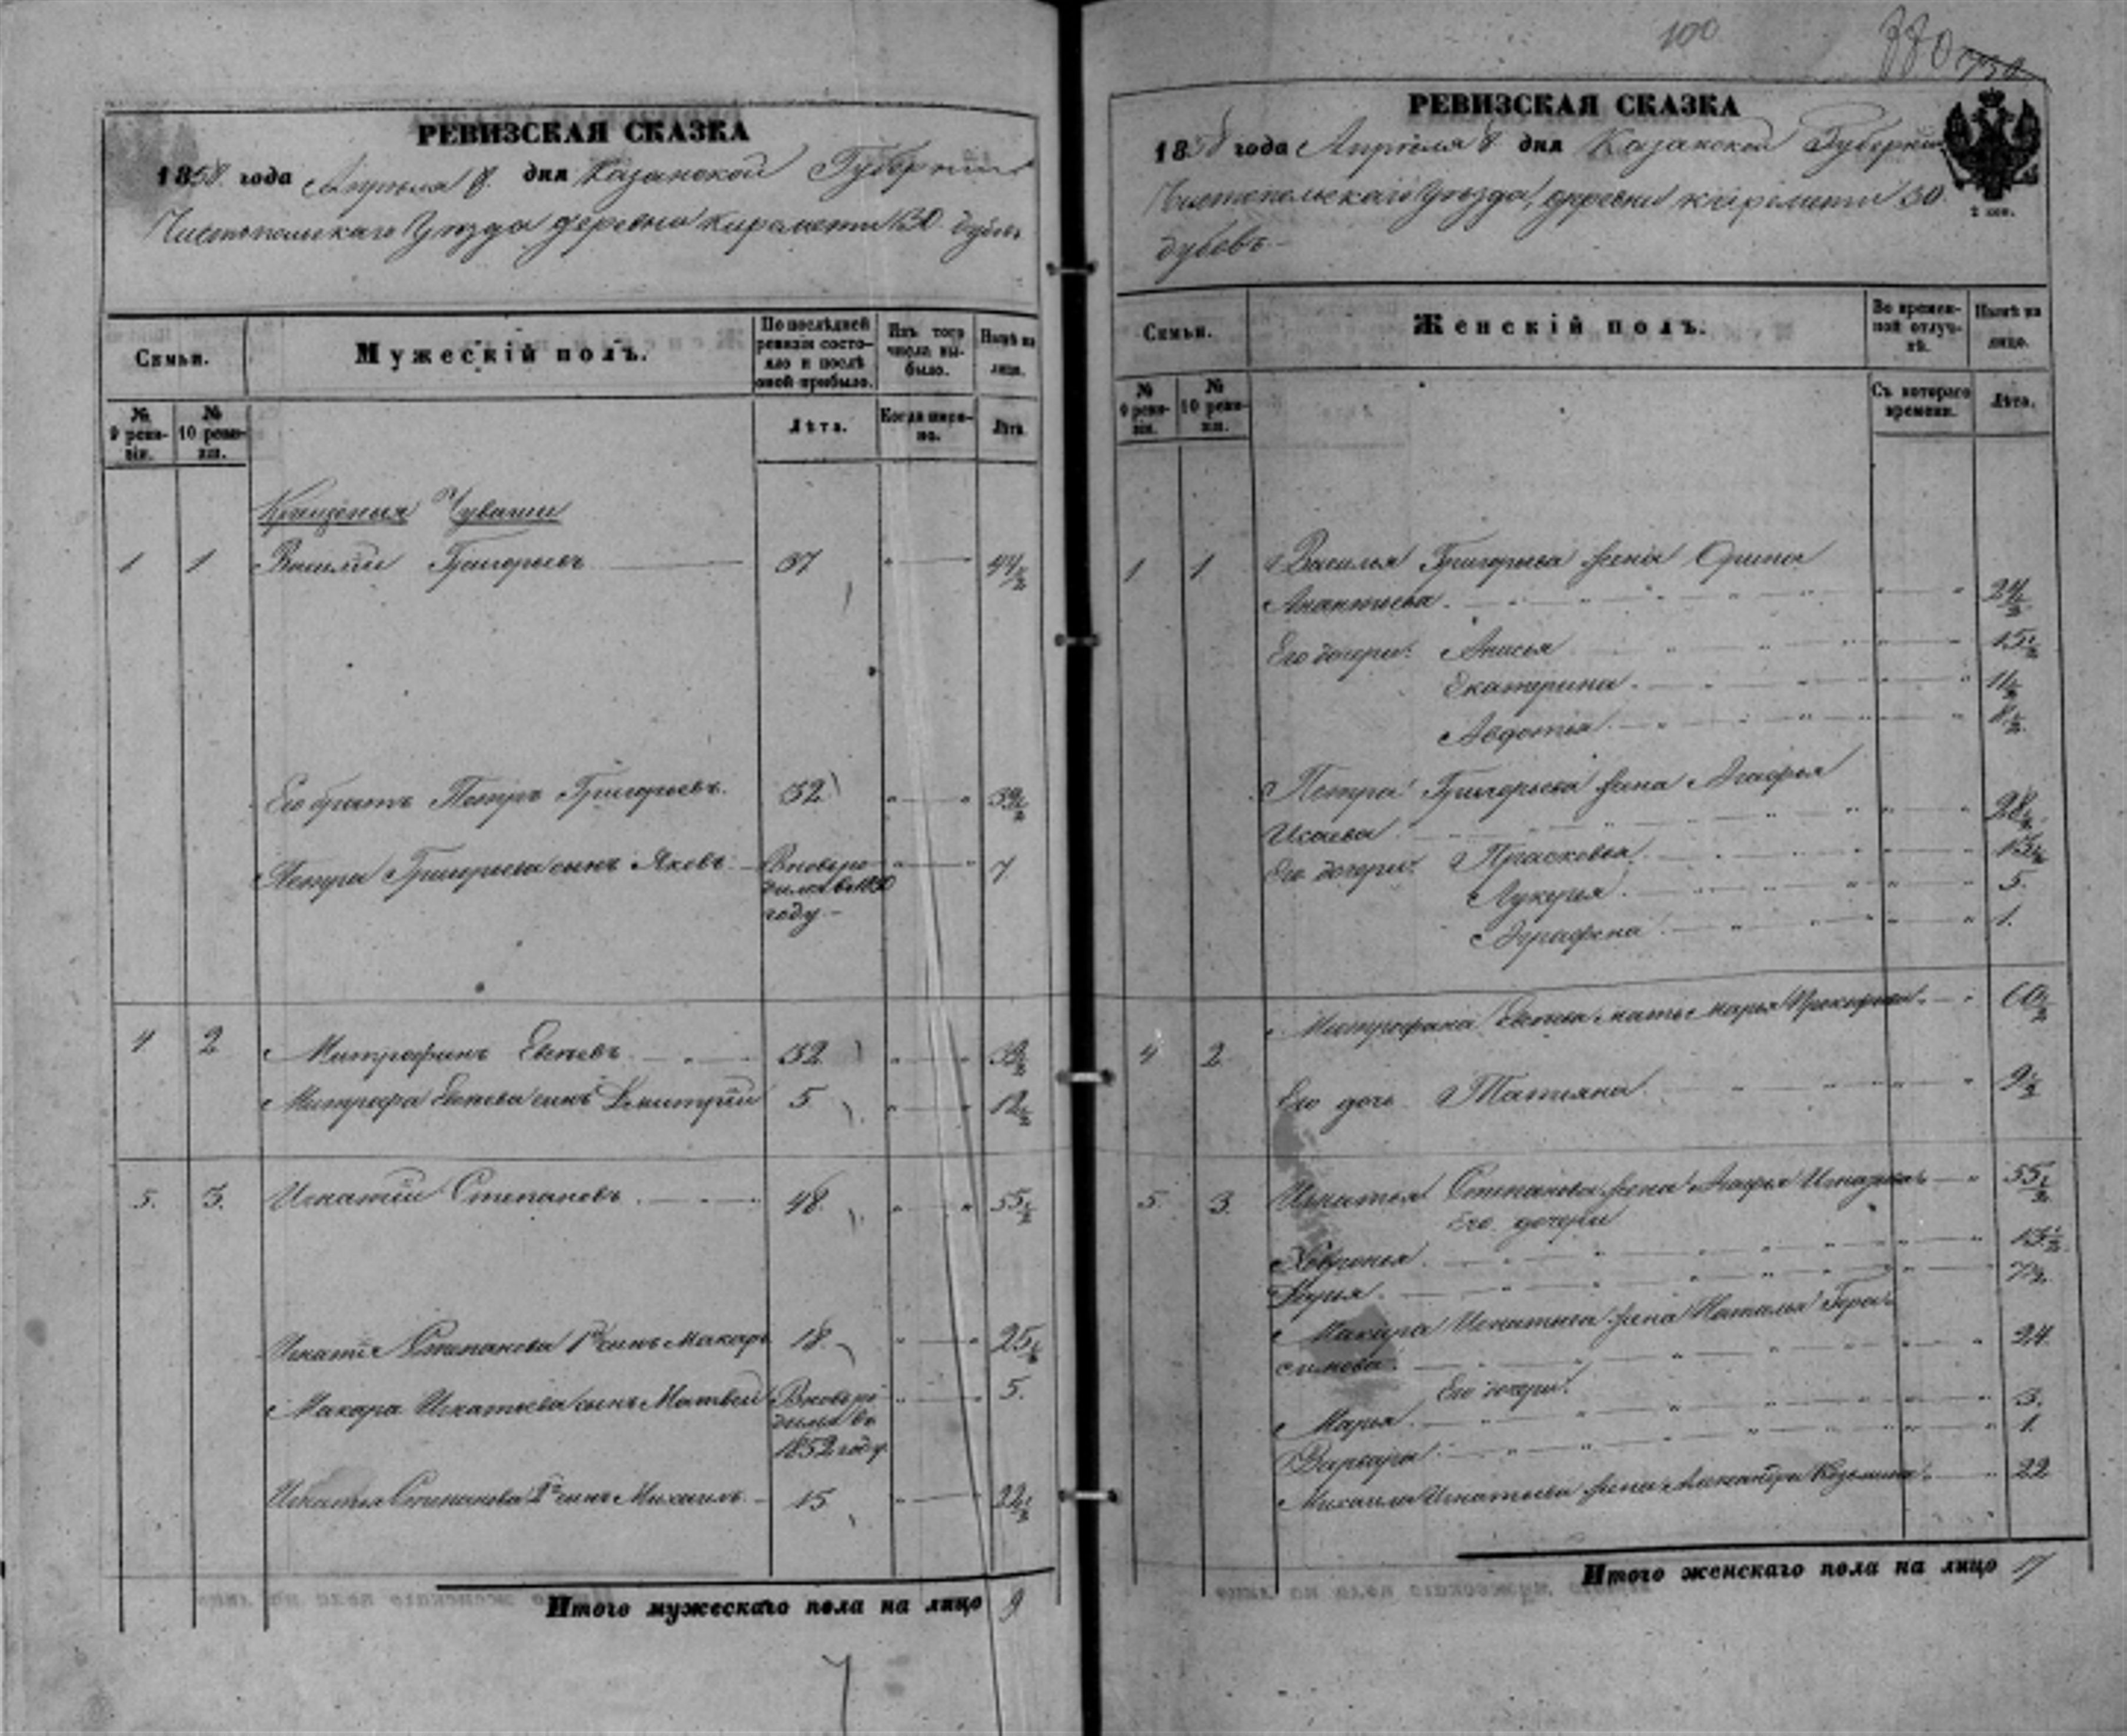 РЕВИЗСКАЯ СКАЗКА
1858 года Апреля 8 дня Казанской Губернии
Чистопольскаго Уезда деревни Киремети 30 дубовъ
Семьи.
Мужескій полъ.
По послѣдней ревизіи состояло и послѣ оной прибыло.
Изъ того числа выбыло.
Нынѣ на лицо.
№ 9 ревизіи.
№ 10 ревизіи.
Лѣта.
Когда именно.
Лѣта
Крещеныя Чуваши
1 1 Василій Григорьевъ 37 44½
Его братъ Петръ Григорьевъ 32 39½
Петра Григорьева сынъ Яковъ Вновь ро 7
дился в 1850
году
4 2 Митрофанъ Евсеевъ 32 39½
Митрофа Евсеева сынъ Дмитрій 5 12½
5. 3. Игнатій Степановъ 48 55½
Игнатія Степанова 1й сынъ Макаръ 18 25½
Макара Игнатьева сынъ Матвей Вновь ро 5.
дился въ
1852 году
Игнатья Степанова 2й сынъ Михаилъ 15 22½
Итого мужескаго пола на лицо 9
100
330
РЕВИЗСКАЯ СКАЗКА
1858 года Апреля 8 дня Казанской Губерніи
Чистопольскаго Уезда, деревни Киремети 30
дубовъ
2 коп.
Семьи.
Женскій полъ.
Во временной отлучкѣ.
Нынѣ на лицо.
№ 9 ревизіи.
№ 10 ревизіи.
Съ котораго времени.
Лѣта.
1 1 Василья Григорьева жена Орина
Анантьева 24½
Его дочери: Анисья 15½
Екатерина 11½
Авдотья 8½
Петра Григорьева жена Агафья
Исаева 28½
Его дочери: Прасковья 13½
Лукерья 5.
Аграфена 1.
4 2 Митрофана Евсеева мать Марья Прокофьева 60½
Его дочь Татьяна 9½
5. 3. Игнатья Степанова жена 55½
Его дочери
Ховронья 13½
Дарья 7½
Макара Игнатьева жена Наталья Гера
симова 24.
Его дочери:
Марья 3.
Варвара 1.
Михаила Игнатьева жена Александра Козьмина 22
Итого женскаго пола на лицо 17